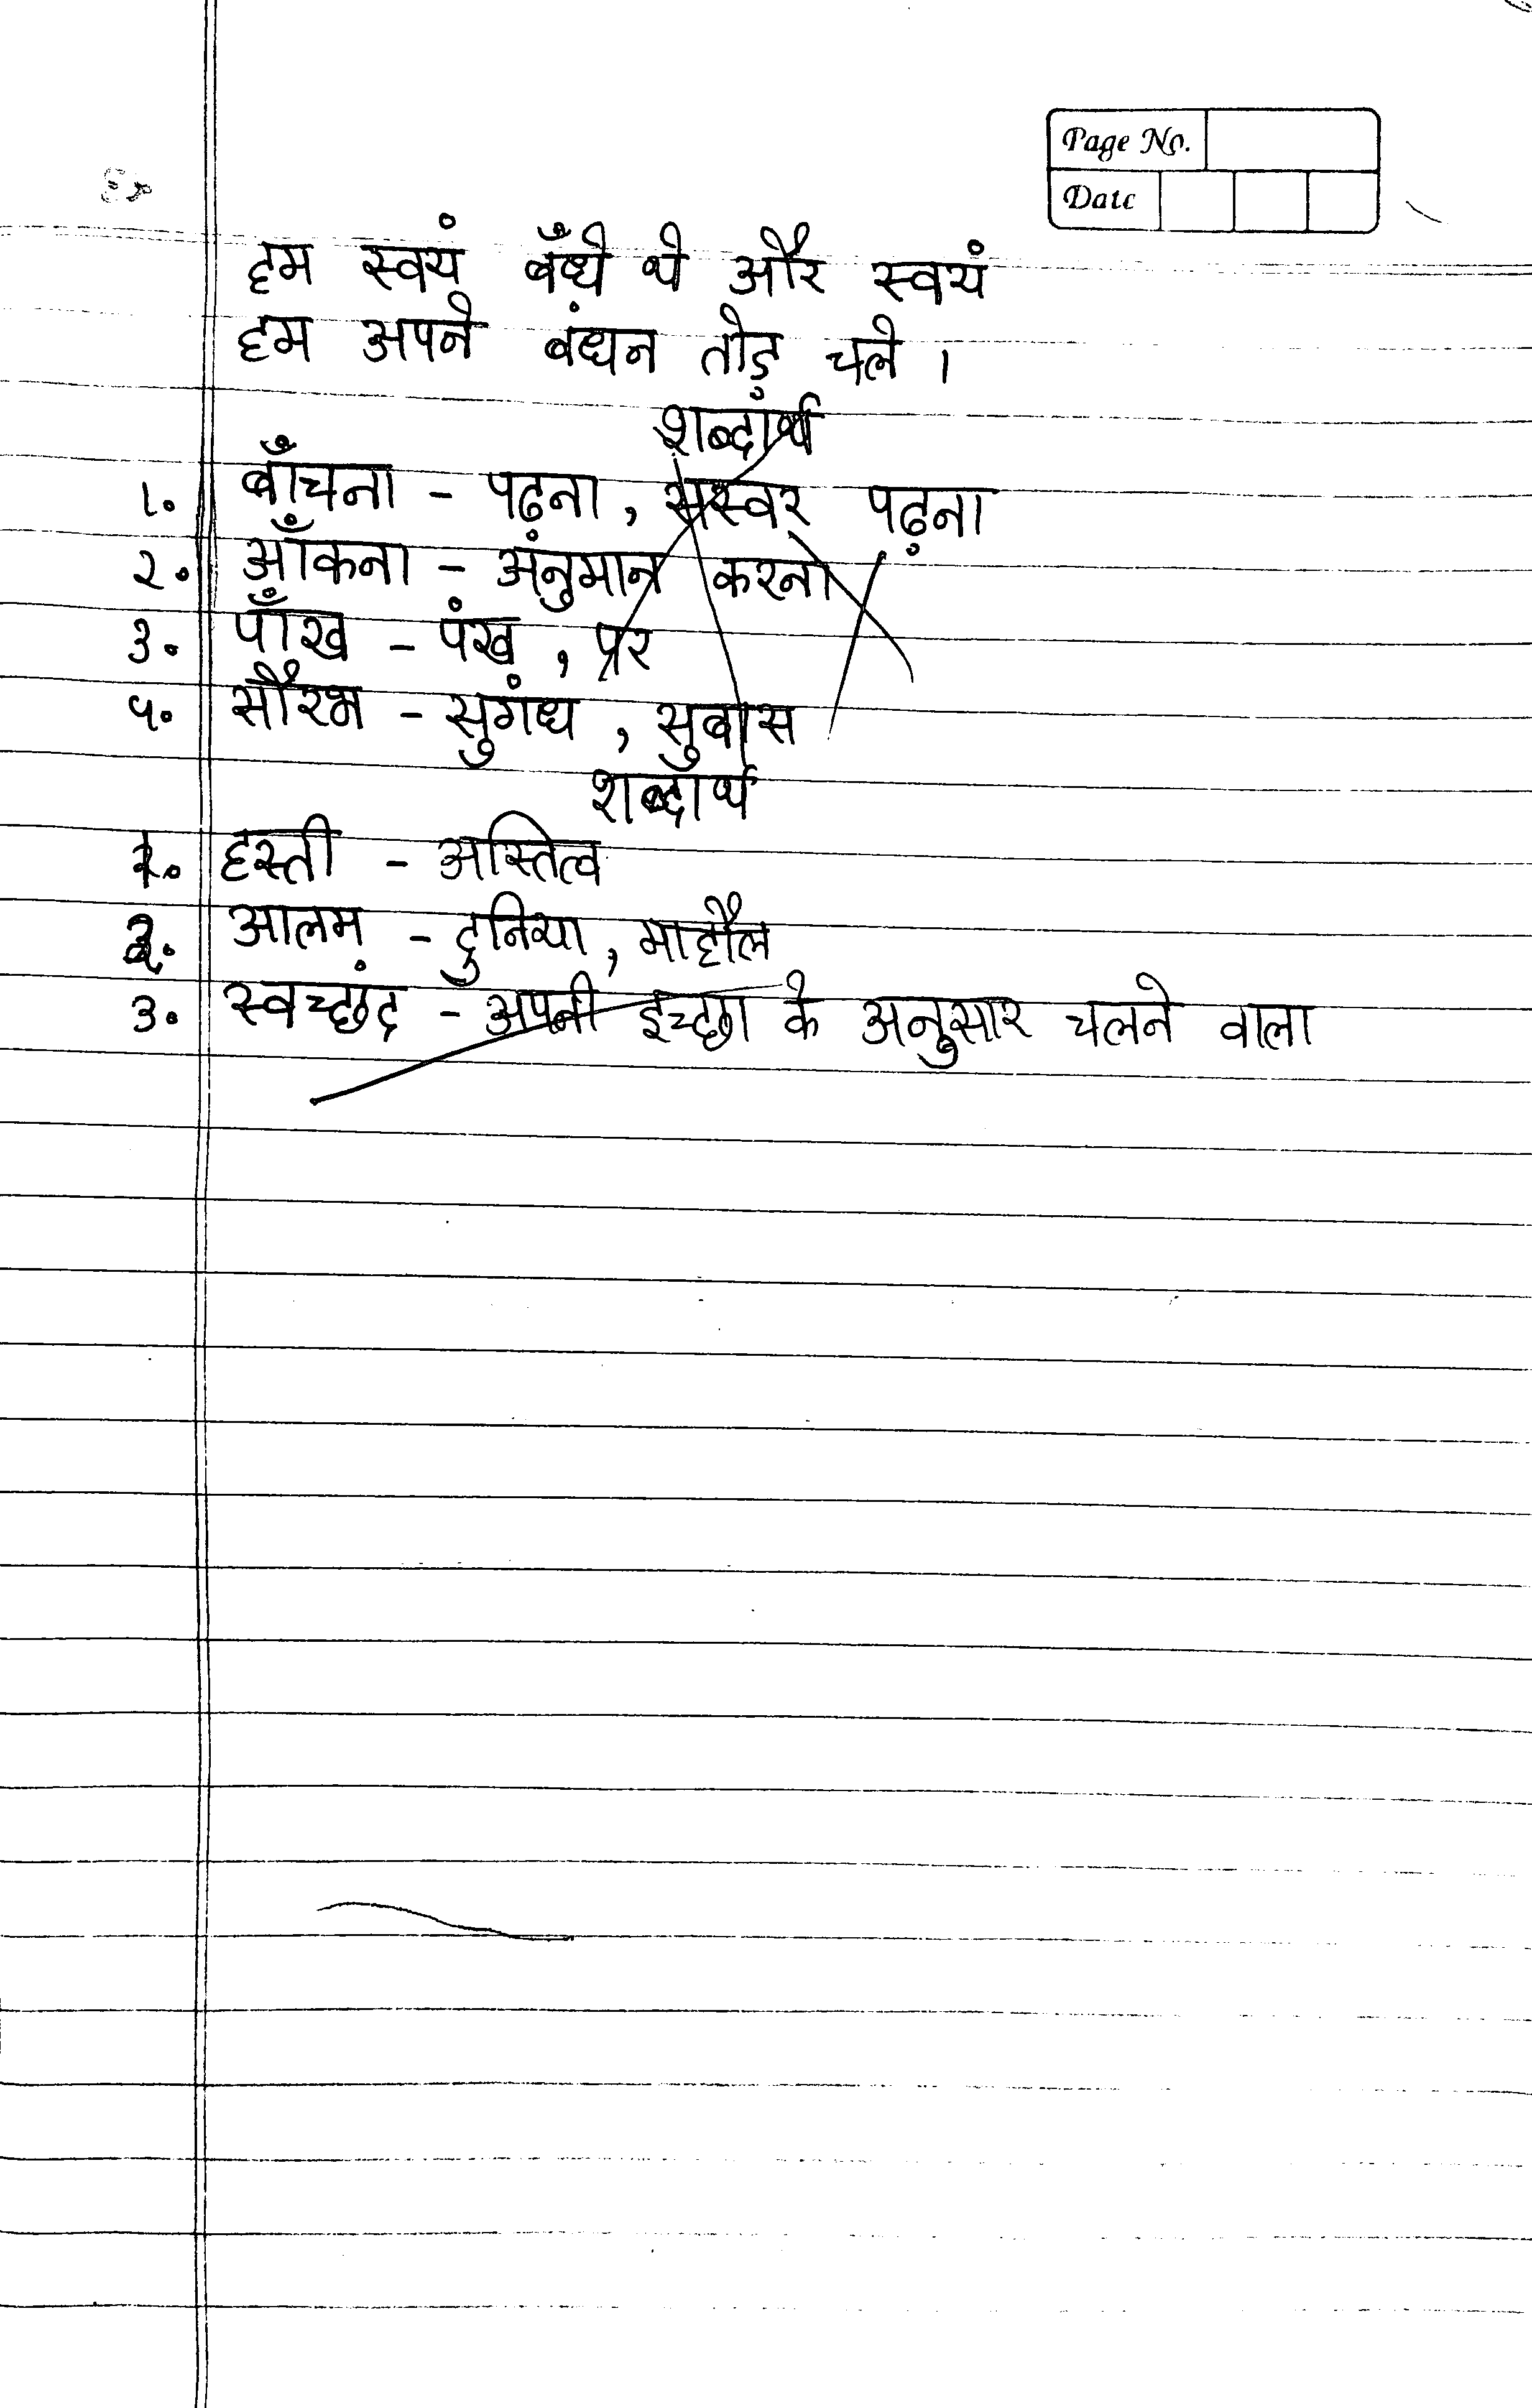 Page No.
Date
हम स्वयं बँधे थे और स्वयं
हम अपने बंधन तोड़ चले ।
शब्दार्थ
१. बाँचना - पढ़ना, सस्वर पढ़ना
२. आँकना - अंनुमान करना
३. पाँख - पंख, पर
५. सौरभ - सुगंध, सुबास
शब्दार्थ
१. हस्ती - अस्तित्व
२. आलम - दुनिया, माहौल
३. स्वच्छंद - अपनी इच्छा के अनुसार चलने वाला